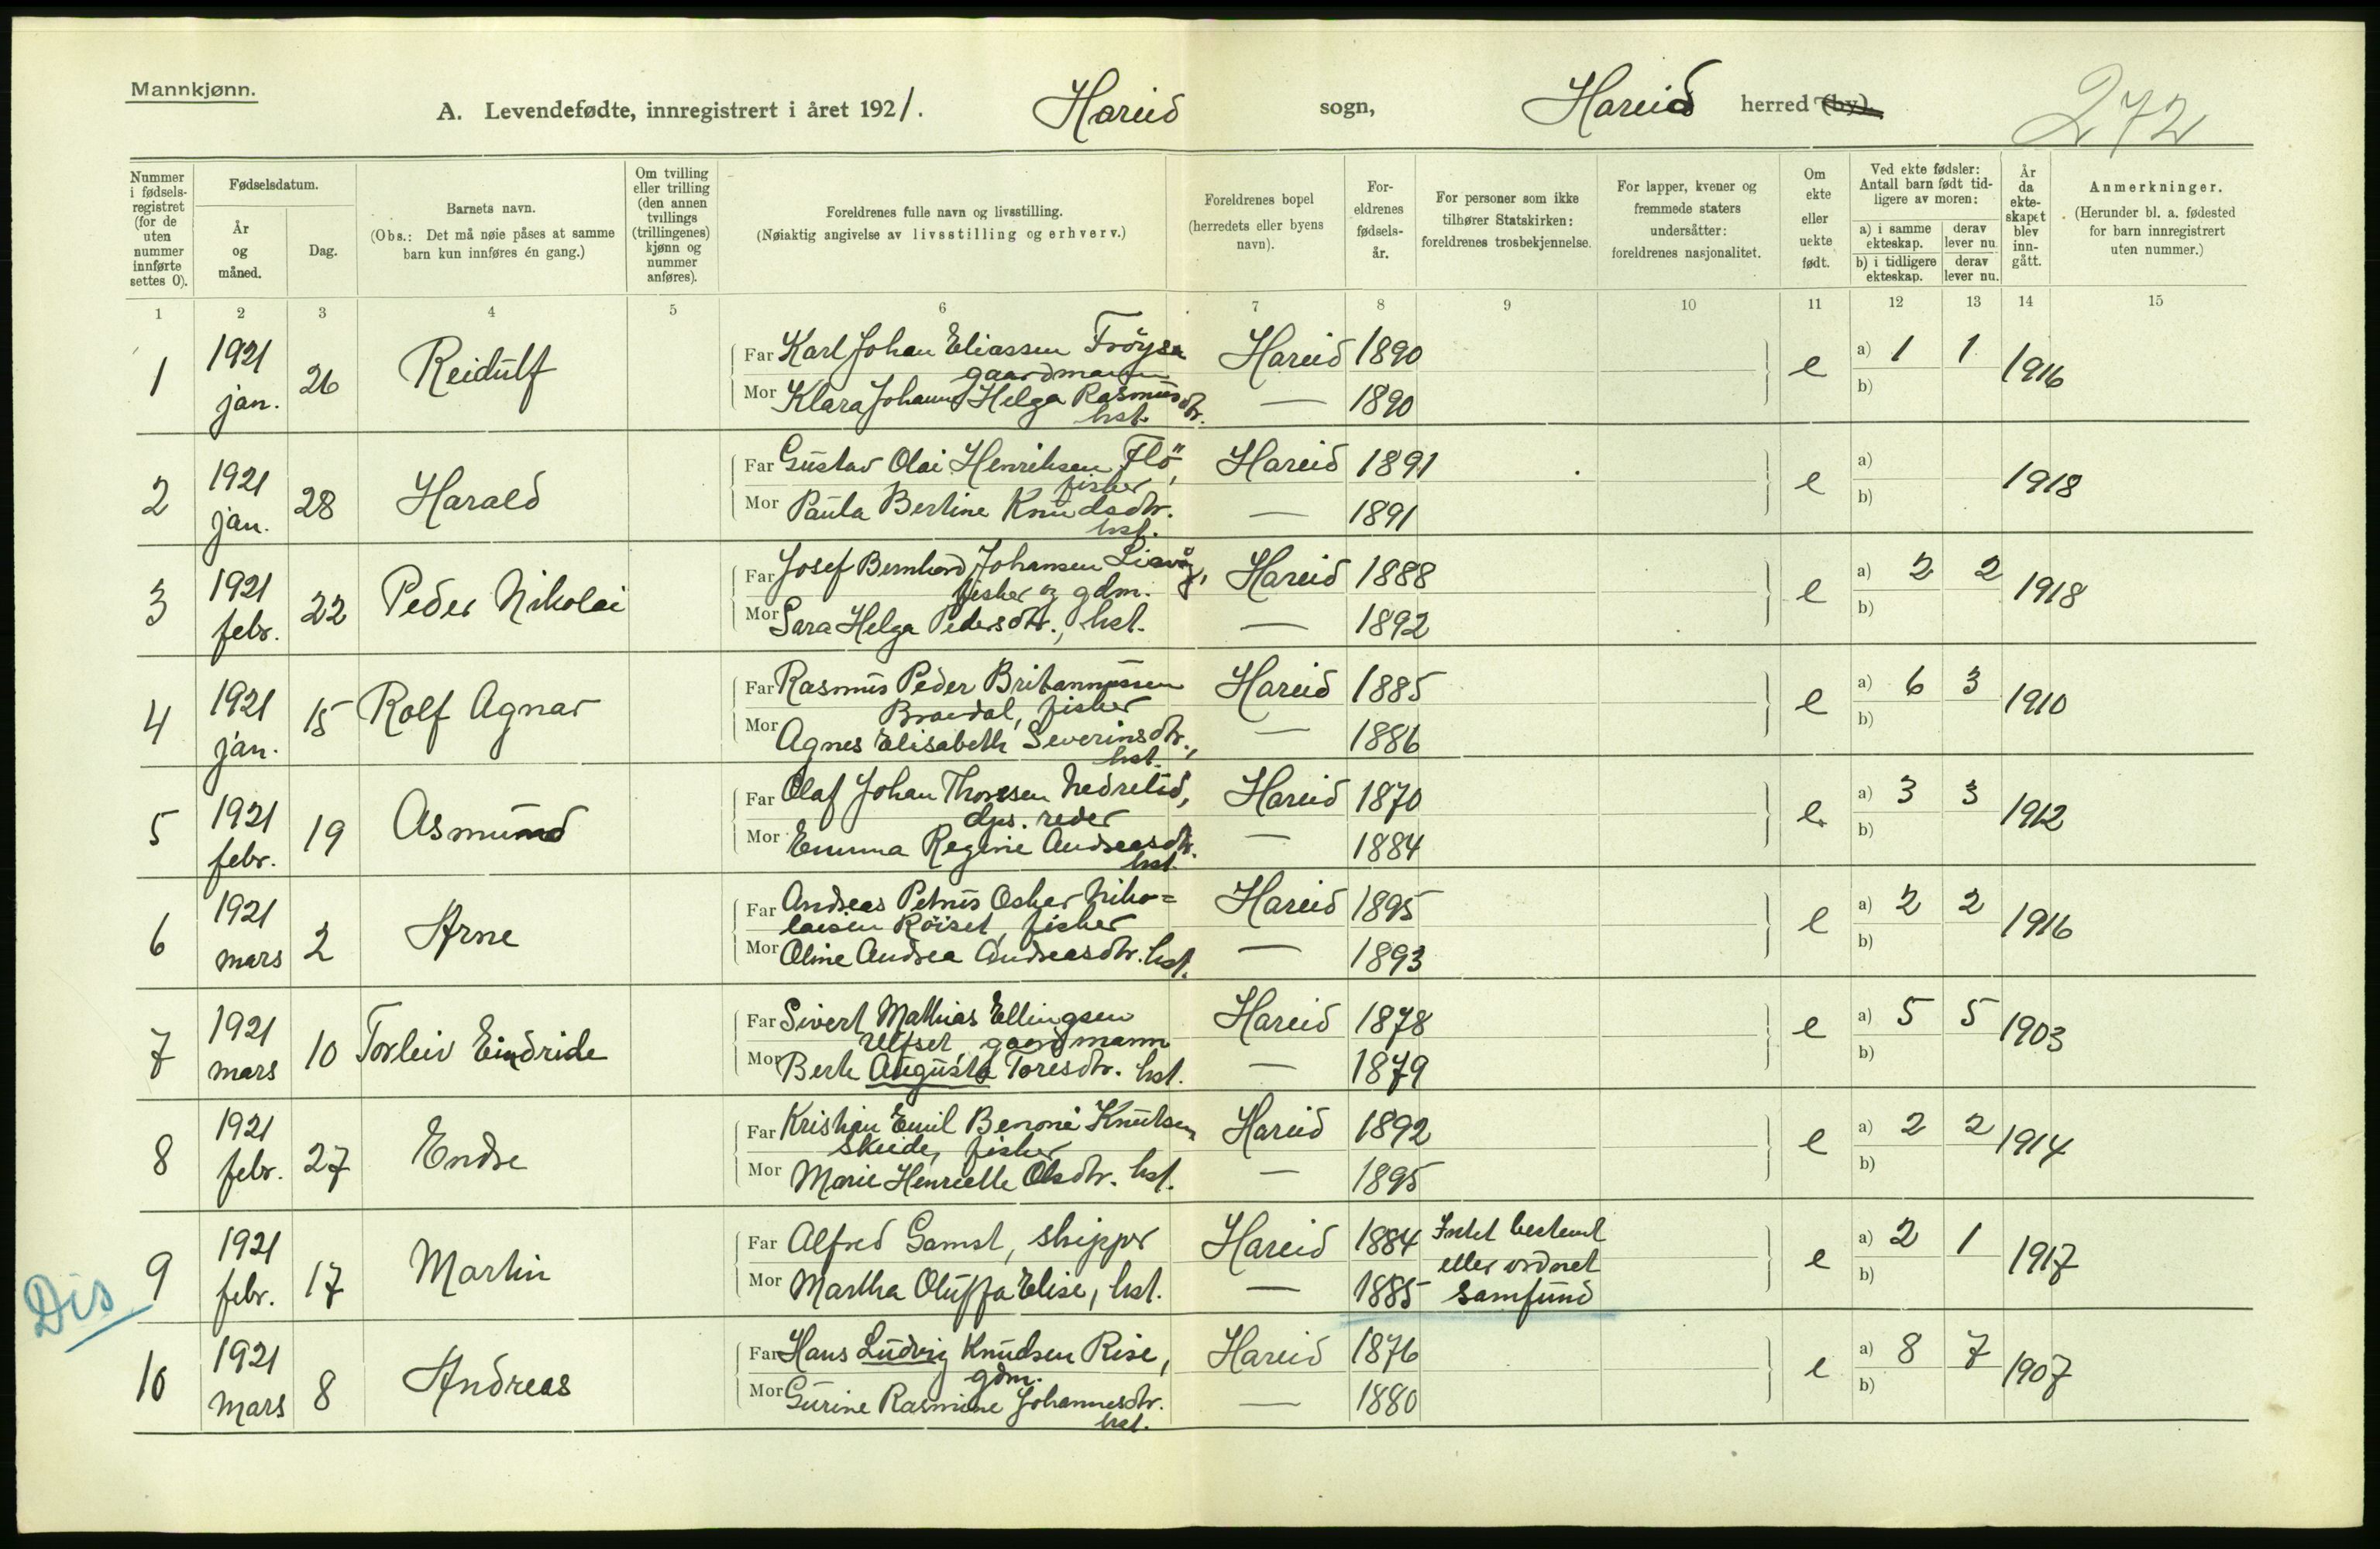 Mannkjønn.
A. Levendefødte, innregistrert i året 1921. Hareid sogn, Hareid herred (by). 272
Nummer i fødsels- registret (for de uten nummer innførte settes 0).
Fødselsdatum.
År og måned.
Dag.
Barnets navn.
(Obs.: Det må nøie påses at samme barn kun innføres én gang.)
Om tvilling eller trilling (den annen tvillings (trillingenes) kjønn og nummer anføres).
Foreldrenes fulle navn og livsstilling.
(Nøiaktig angivelse av livsstilling og erhverv.)
Foreldrenes bopel (herredets eller byens navn).
For- eldrenes fødsels- år.
For personer som ikke tilhører Statskirken: foreldrenes trosbekjennelse.
For lapper, kvener og fremmede staters undersåtter: foreldrenes nasjonalitet.
Om ekte eller uekte født.
Ved ekte fødsler: Antall barn født tid- ligere av moren:
a) i samme ekteskap. derav lever nu.
b) i tidligere ekteskap. derav lever nu.
År da ekte- skapet blev inn- gått.
Anmerkninger.
(Herunder bl. a. fødested for barn innregistrert uten nummer.)
1 2 3 4 5 6 7 8 9 10 11 12 13 14 15
1 1921 jan. 26 Reidulf
Far Karl Johan Eliassen Frøysa Hareid 1890 e a) 1 1 1916
gaardmann
Mor Klara Johanne Helga Rasmusdtr. — 1890 b)
hst.
2 1921 jan. 28 Harald
Far Gustav Olai Henriksen Flö, Hareid 1891 e a) 1918
fisker
Mor Paula Bertine Knudsdtr. — 1891 b)
hst.
3 1921 febr. 22 Peder Nikolai
Far Josef Bernhard Johansen Liavåg, Hareid 1888 e a) 2 2 1918
fisker og gdm.
Mor Sara Helga Pedersdtr., hst. — 1892 b)
4 1921 jan. 15 Rolf Agnar
Far Rasmus Peder Britannussen Hareid 1885 e a) 6 3 1910
Brandal, fisker
Mor Agnes Elisabeth Severinsdtr., — 1886 b)
hst.
5 1921 febr. 19 Asmund
Far Olaf Johan Thoresen Nedrelid, Hareid 1870 e a) 3 3 1912
dps. reder
Mor Emma Regine Andreasdtr. — 1884 b)
hst.
6 1921 mars 2 Arne
Far Andreas Petrus Oskar Niko= Hareid 1895 e a) 2 2 1916
laisen Röiset, fisker
Mor Oline Andrea Andreasdtr. hst. — 1893 b)
7 1921 mars 10 Torleiv Eindride
Far Sivert Mathias Ellingsen Hareid 1878 e a) 5 5 1903
Ulfset, gaardmann
Mor Berte Augusta Toresdtr. hst. — 1879 b)
8 1921 febr. 27 Endre
Far Kristian Emil Benoni Knutsen Hareid 1892 e a) 2 2 1914
Skeide, fisker
Mor Marie Henriette Olsdtr. hst. — 1895 b)
Dis
9 1921 febr. 17 Martin
Far Alfred Gamst, skipper Hareid 1884 Intet bestemt e a) 2 1 1917
eller ordnet
Mor Martha Oluffa Elise, hst. — 1885 samfund b)
10 1921 mars 8 Andreas
Far Hans Ludvig Knudsen Rise, Hareid 1876 e a) 8 7 1907
gdm.
Mor Gurine Rasmine Johannesdtr. — 1880 b)
hst.